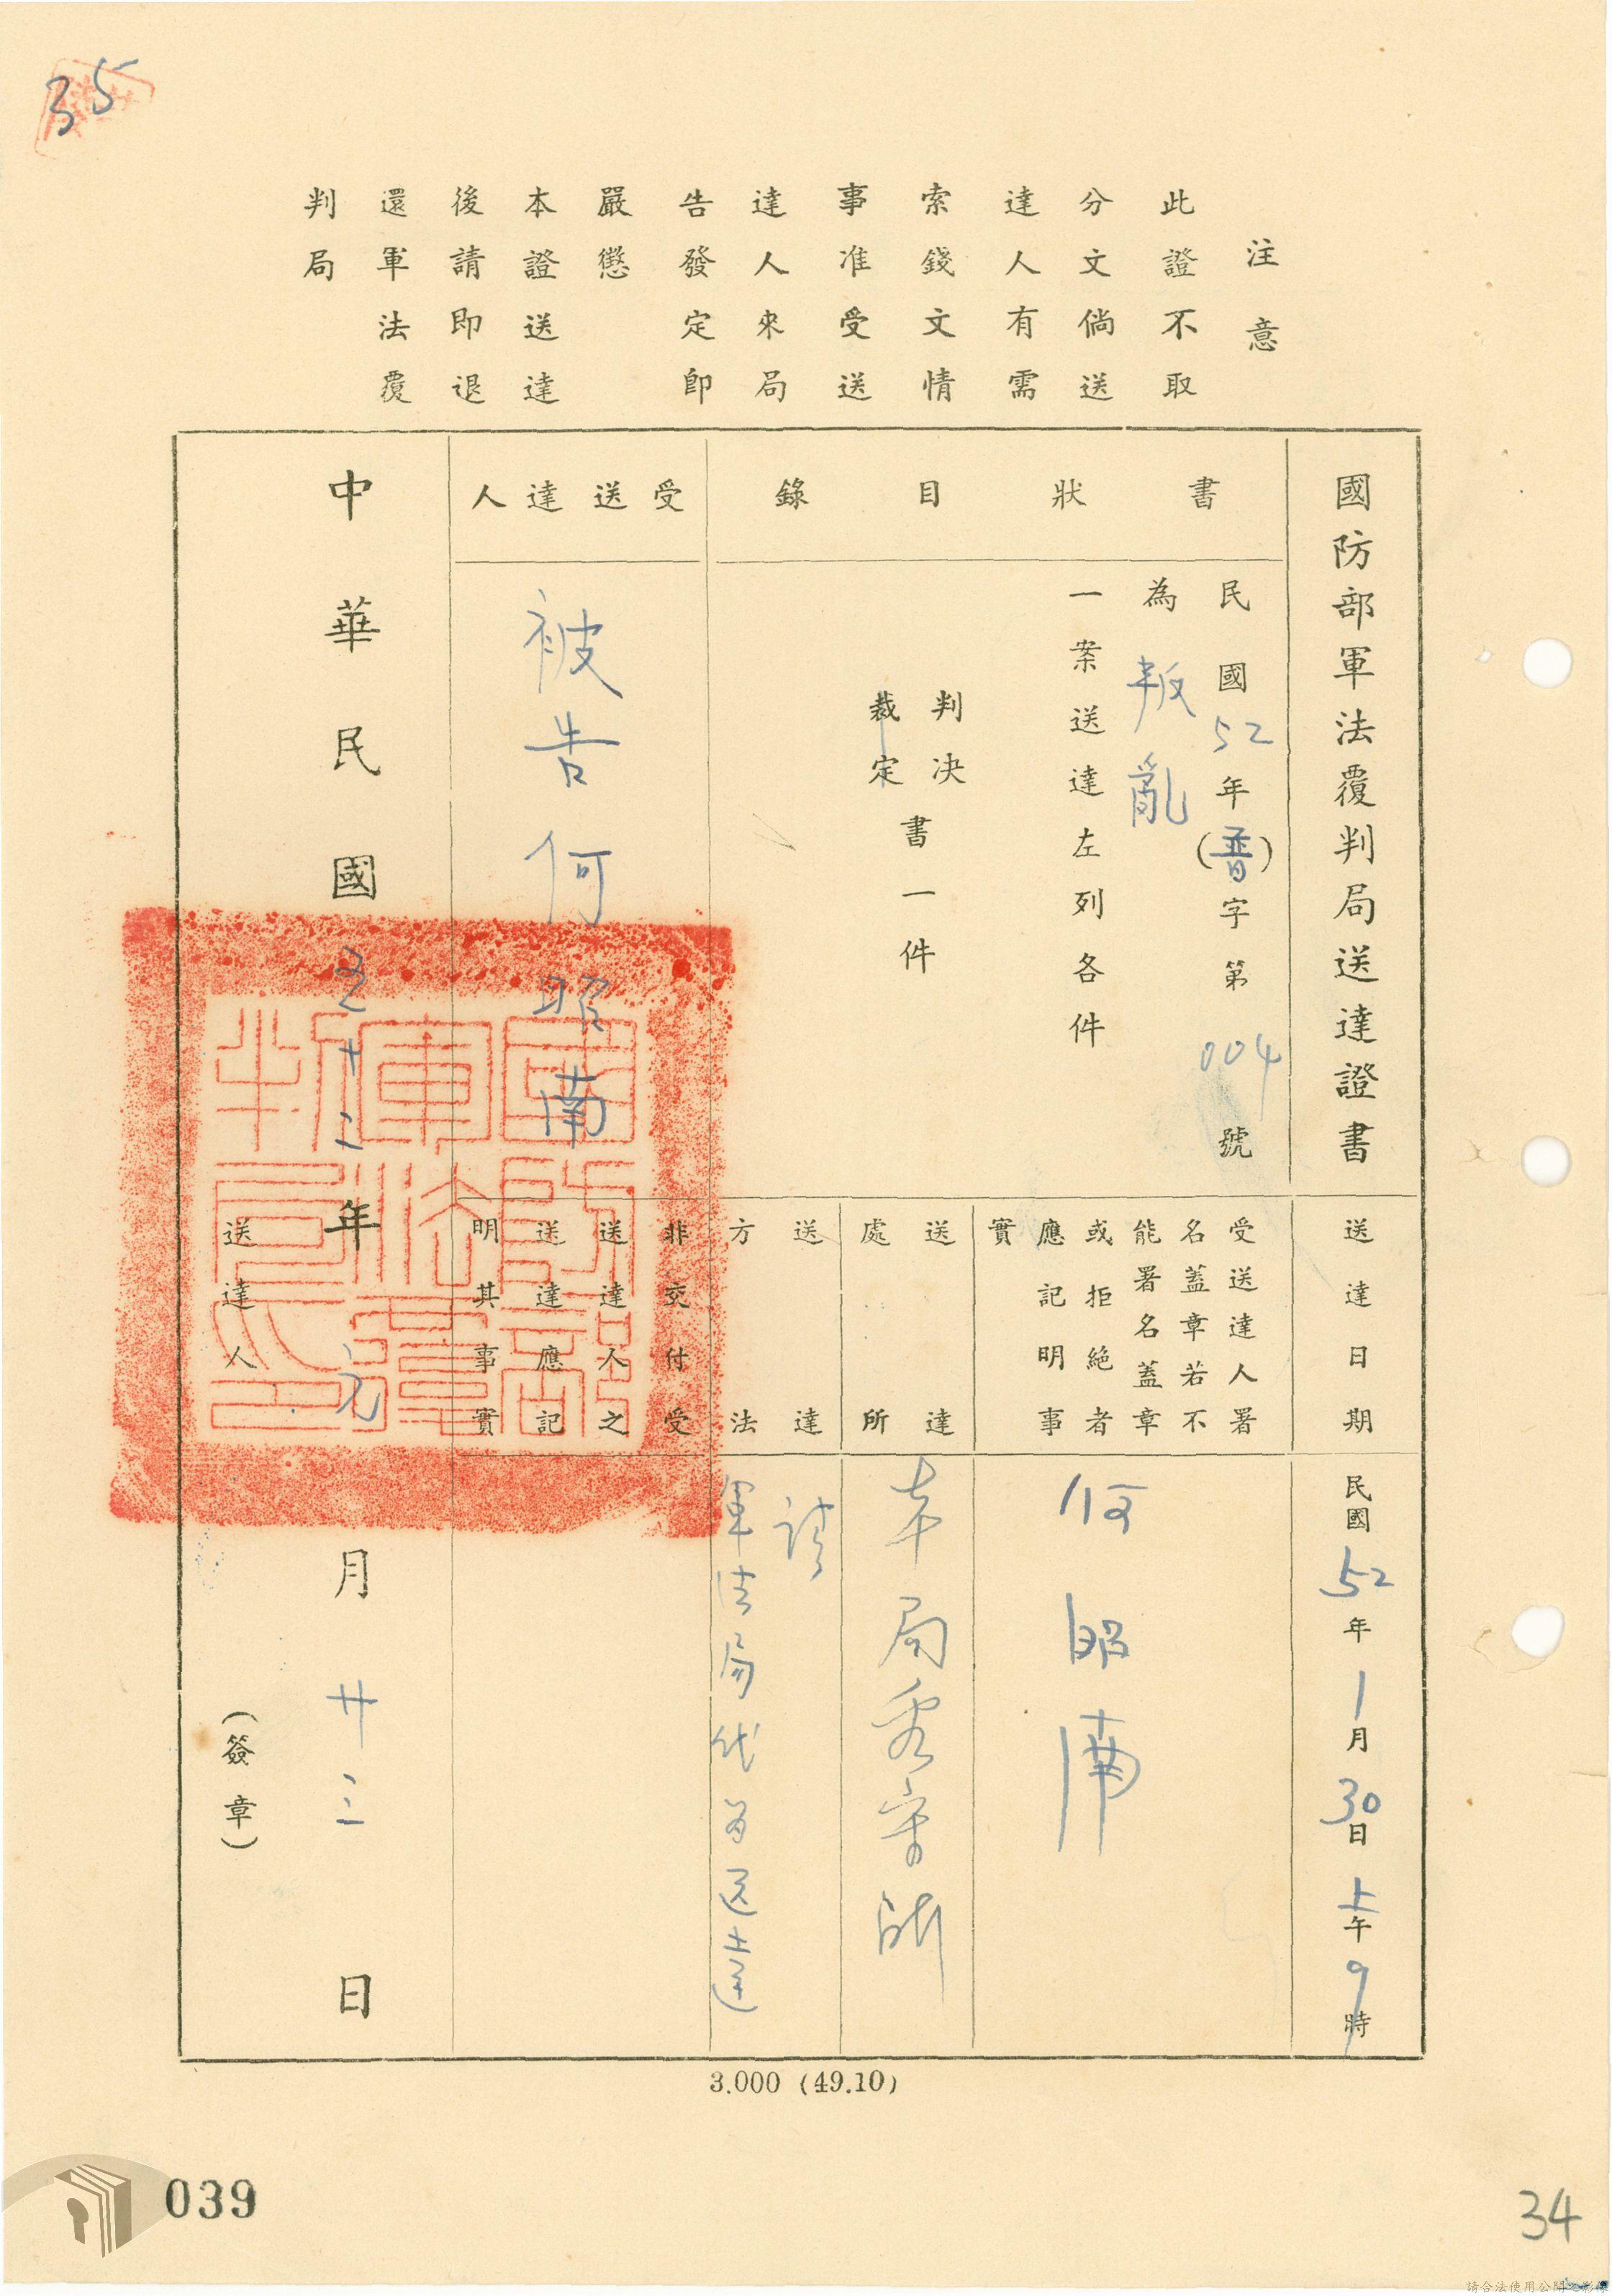 35
注意
此證不取
分文倘送
達人有需
索錢文情
事准受送
達人來局
告發定即
嚴懲
本證送達
後請即退
還軍法覆
判局
國防部軍法覆判局送達證書
書狀目錄
民國52年(普)字第004號
為叛亂
一案送達左列各件
判決
裁定
書一件
受送達人
被告何昭南
送達日期
民國52年1月30日上午9時
受送達人署
名蓋章若不
能署名蓋章
或拒絕者
應記明事
實
何昭南
送達
處所
本局看守所
送達
方法
請
軍法局代為送達
非交付受
送達人之
送達應記
明其事實
中華民國五十二年元月廿三日
送達人
(簽章)
國防部軍法覆判局印
3.000 (49.10)
039
34